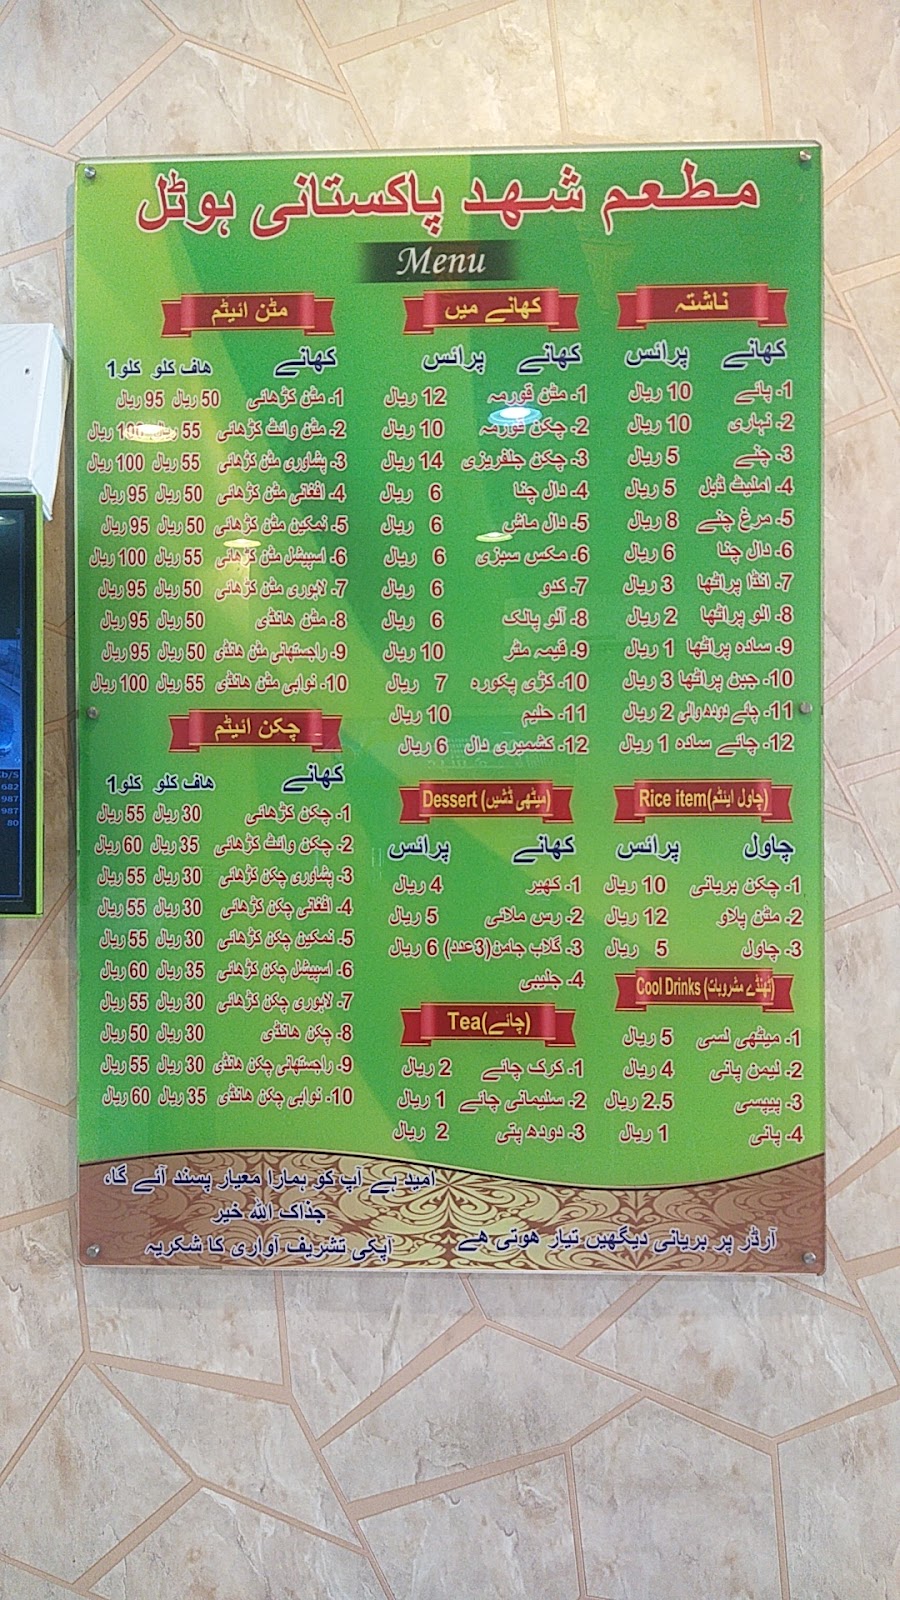 مطعم شهد پاکستانی ہوٹل
Menu
ناشتہ
کھانے پرائس
1- پائے 10 ریال
2- نہاری 10 ریال
3- چنے 5 ریال
4- املیٹ ڈبل 5 ریال
5- مرغ چنے 8 ریال
6- دال چنا 6 ریال
7- انڈا پراٹھا 3 ریال
8- الو پراٹھا 2 ریال
9- سادہ پراٹھا 1 ریال
10- جبن پراٹھا 3 ریال
11- چائے دودھ والی 2 ریال
12- چائے سادہ 1 ریال
Rice item(چاول ایٹم)
چاول پرائس
1- چکن بریانی 10 ریال
2- مٹن پلاو 12 ریال
3- چاول 5 ریال
Cool Drinks (ٹھنڈے مشروبات)
1- میٹھی لسی 5 ریال
2- لیمن پانی 4 ریال
3- پیپسی 2.5 ریال
4- پانی 1 ریال
کھانے میں
کھانے پرائس
1- مٹن قورمہ 12 ریال
2- چکن قورمہ 10 ریال
3- چکن جلفریزی 14 ریال
4- دال چنا 6 ریال
5- دال ماش 6 ریال
6- مکس سبزی 6 ریال
7- کدو 6 ریال
8- آلو پالک 6 ریال
9- قیمہ مٹر 10 ریال
10- کڑی پکورہ 7 ریال
11- حلیم 10 ریال
12- کشمیری دال 6 ریال
Dessert (میٹھی ڈشیں)
کھانے پرائس
1- کھیر 4 ریال
2- رس ملائی 5 ریال
3- گلاب جامن(3عدد) 6 ریال
4- جلیبی
Tea(چائے)
1- کرک چائے 2 ریال
2- سلیمانی چائے 1 ریال
3- دودھ پتی 2 ریال
مٹن ائیٹم
کھانے ھاف کلو کلو1
1- مٹن کڑھائی 50 ریال 95 ریال
2- مٹن وائٹ کڑھائی 55 ریال 100 ریال
3- پشاوری مٹن کڑھائی 55 ریال 100 ریال
4- افغانی مٹن کڑھائی 50 ریال 95 ریال
5- نمکین مٹن کڑھائی 50 ریال 95 ریال
6- اسپیشل مٹن کڑھائی 55 ریال 100 ریال
7- لاہوری مٹن کڑھائی 50 ریال 95 ریال
8- مٹن ھانڈی 50 ریال 95 ریال
9- راجستھانی مٹن ھانڈی 50 ریال 95 ریال
10- نوابی مٹن ھانڈی 55 ریال 100 ریال
چکن ائیٹم
کھانے ھاف کلو کلو1
1- چکن کڑھائی 30 ریال 55 ریال
2- چکن وائٹ کڑھائی 35 ریال 60 ریال
3- پشاوری چکن کڑھائی 30 ریال 55 ریال
4- افغانی چکن کڑھائی 30 ریال 55 ریال
5- نمکین چکن کڑھائی 30 ریال 55 ریال
6- اسپیشل چکن کڑھائی 35 ریال 60 ریال
7- لاہوری چکن کڑھائی 30 ریال 55 ریال
8- چکن ھانڈی 30 ریال 50 ریال
9- راجستھانی چکن ھانڈی 30 ریال 55 ریال
10- نوابی چکن ھانڈی 35 ریال 60 ریال
آرڈر پر بریانی دیگھیں تیار ھوتی ھے
امید ہے آپ کو ہمارا معیار پسند آئے گا،
جذاک اللہ خیر
آپکی تشریف آواری کا شکریہ
Kb/S
682
987
987
80